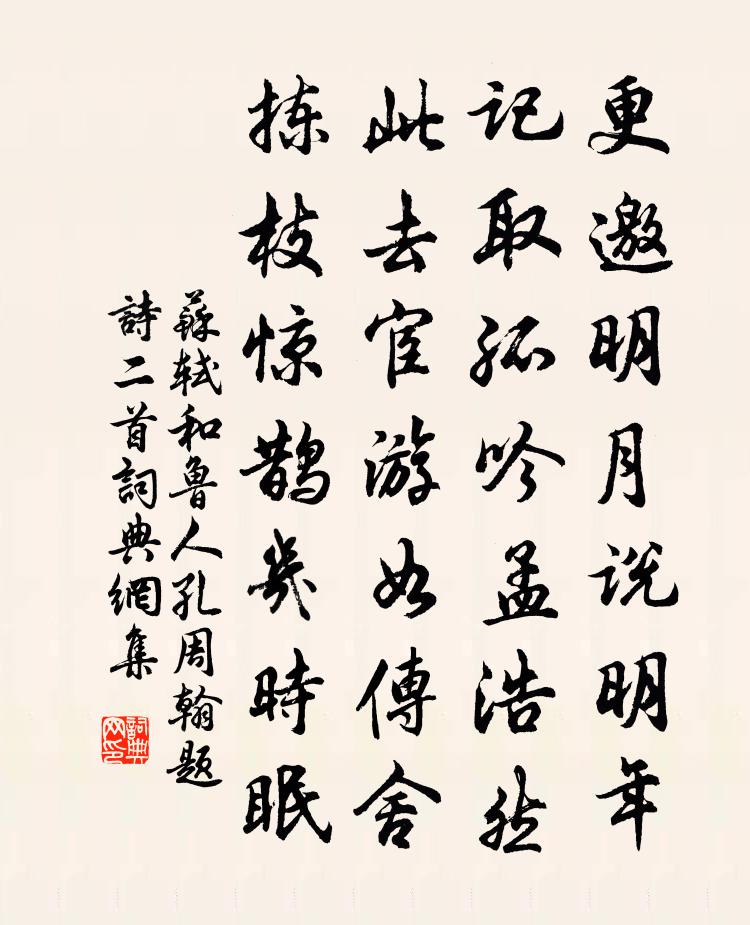 更邀明月说明年
记取孤吟孟浩然
此去宦游如傳舍
拣枝惊鹊幾時眠
蘇軾和魯人孔周翰題
詩二首詞典網集
詞典网印